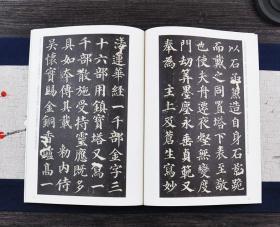 以石函兼造自身石影跪
而戴之同置塔下表至敬
也使夫舟遷夜壑無變度
門劫算墨塵永垂貞範又
奉為 主上及蒼生寫妙
法蓮華經一千部金字三
十六部用鎮寶塔又寫一
千部散施受持靈應既多
具如本傳其載 敕內侍
吳懷實賜金銅香爐高一